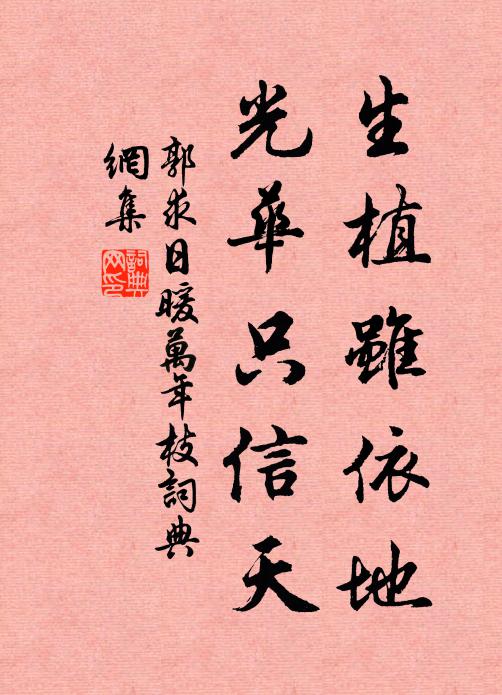 生植雖依地
光華只信天
郭求日暖萬年枝詞典
網集
詞典
网印